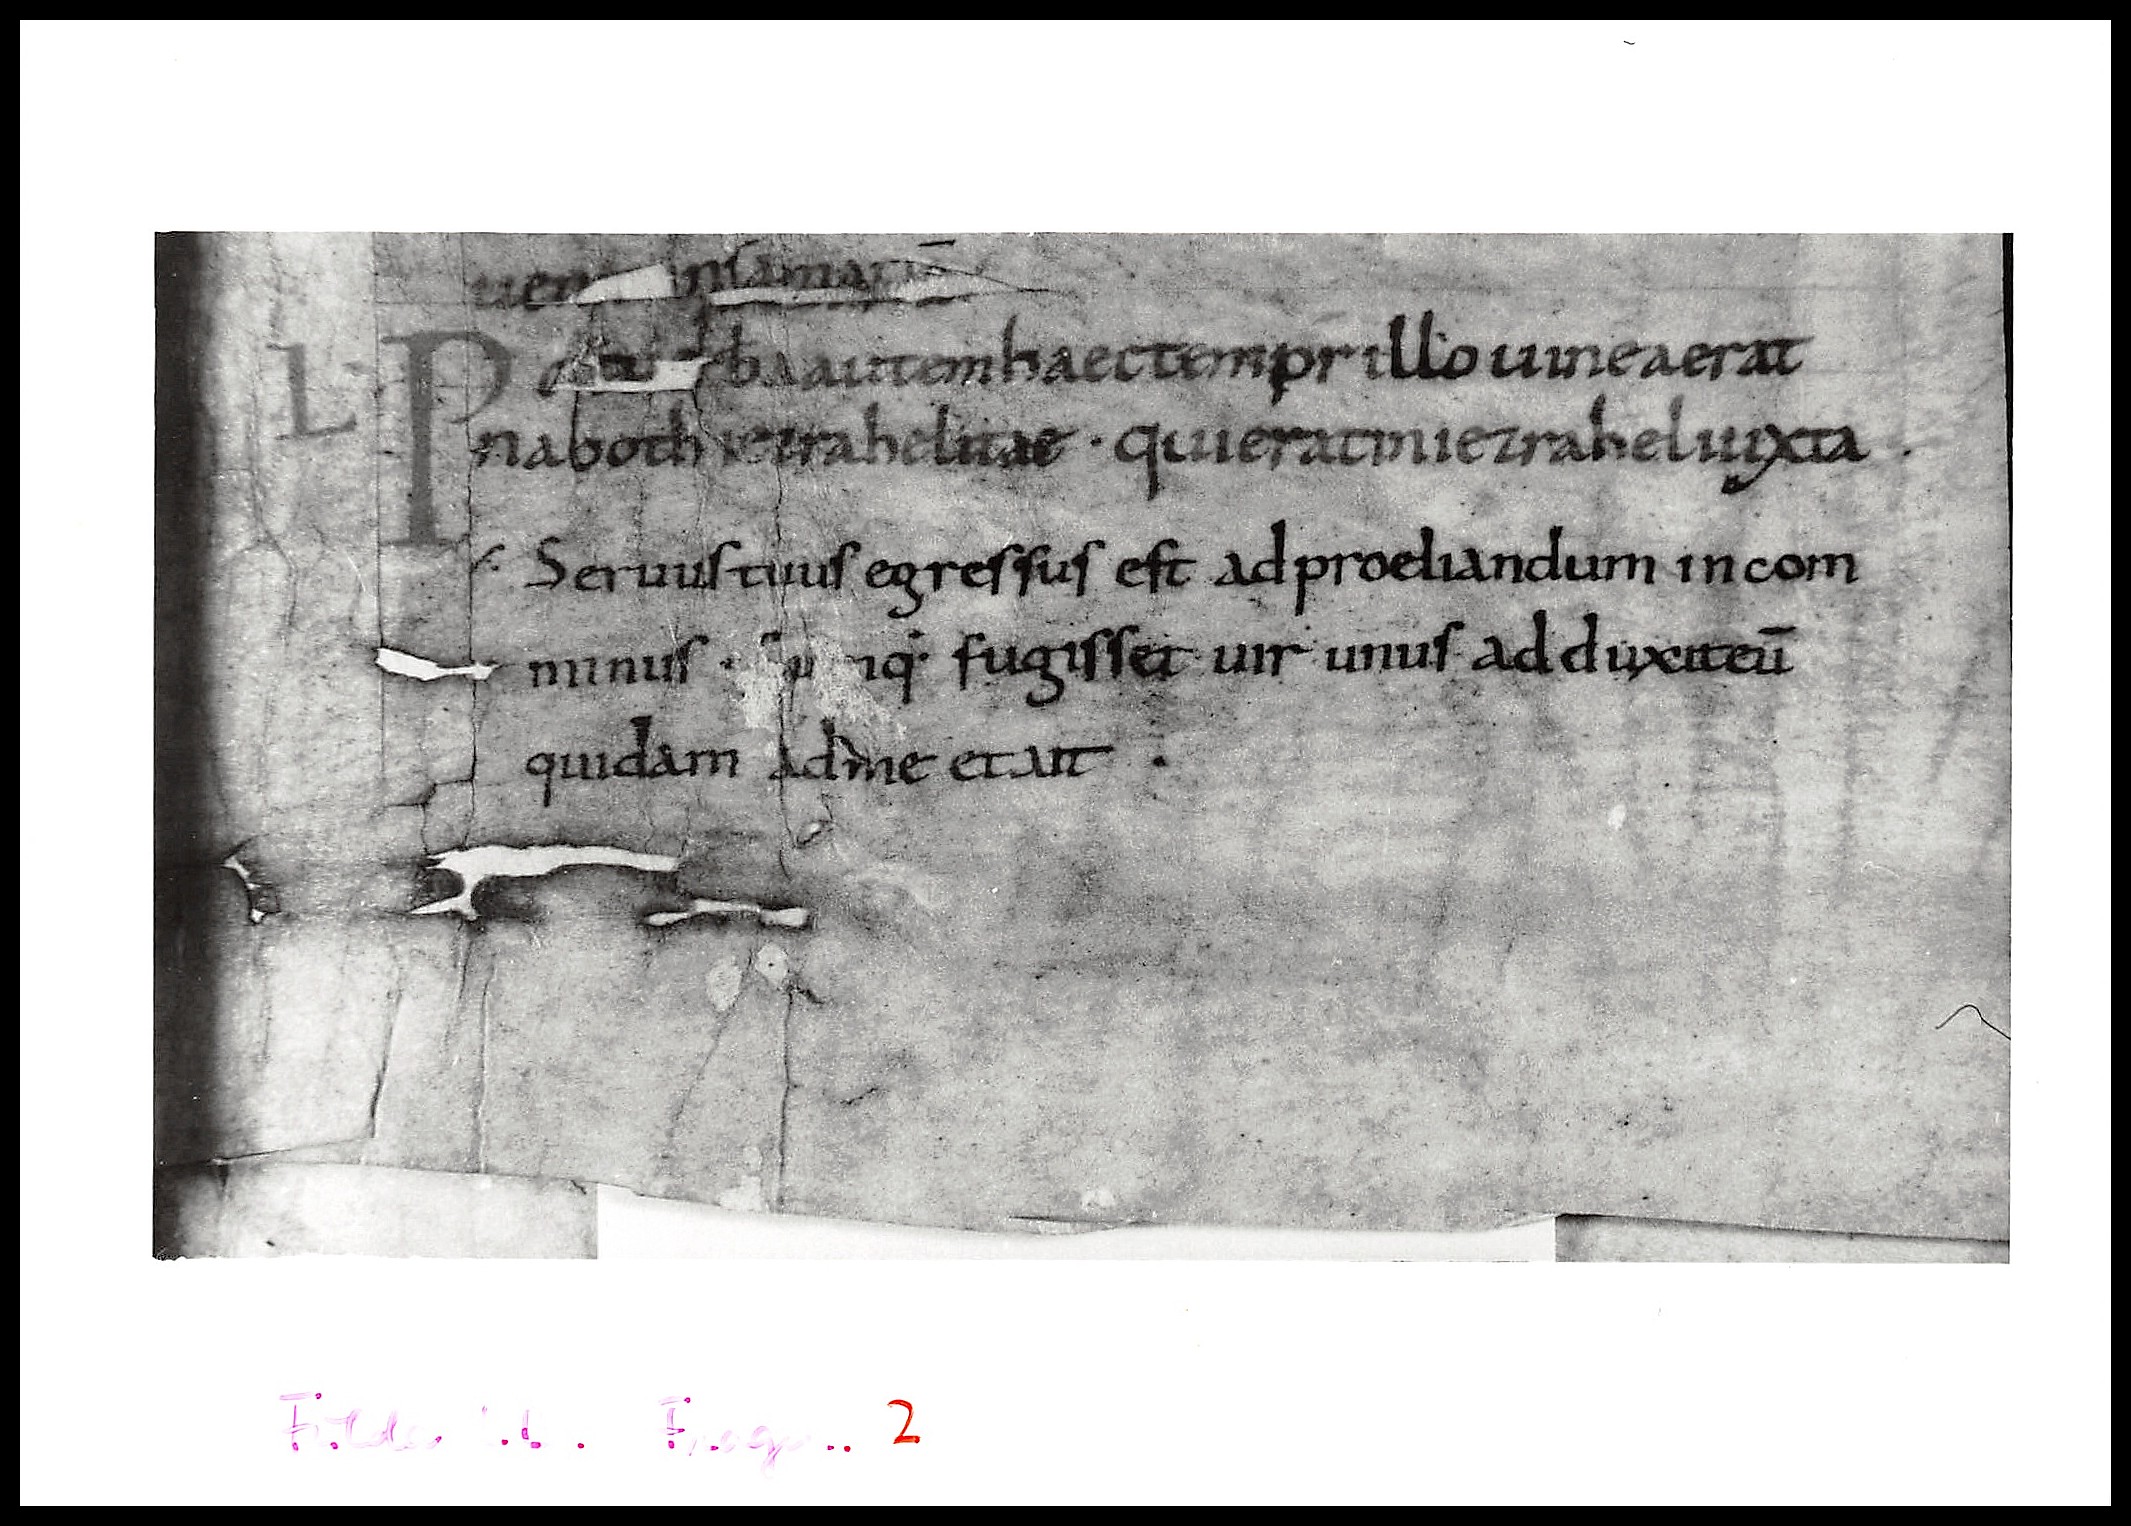 uen insamariā
L· Post uerba autem haec tempr illo uinea erat
naboth iezrahelitae · qui erat in iezrahel iuxta ·
Seruus tuus egressus est ad proeliandum in com
minus · cūq; fugisset uir unus adduxit eū
quidam ad me et ait ·
Fulda Fragm. 2